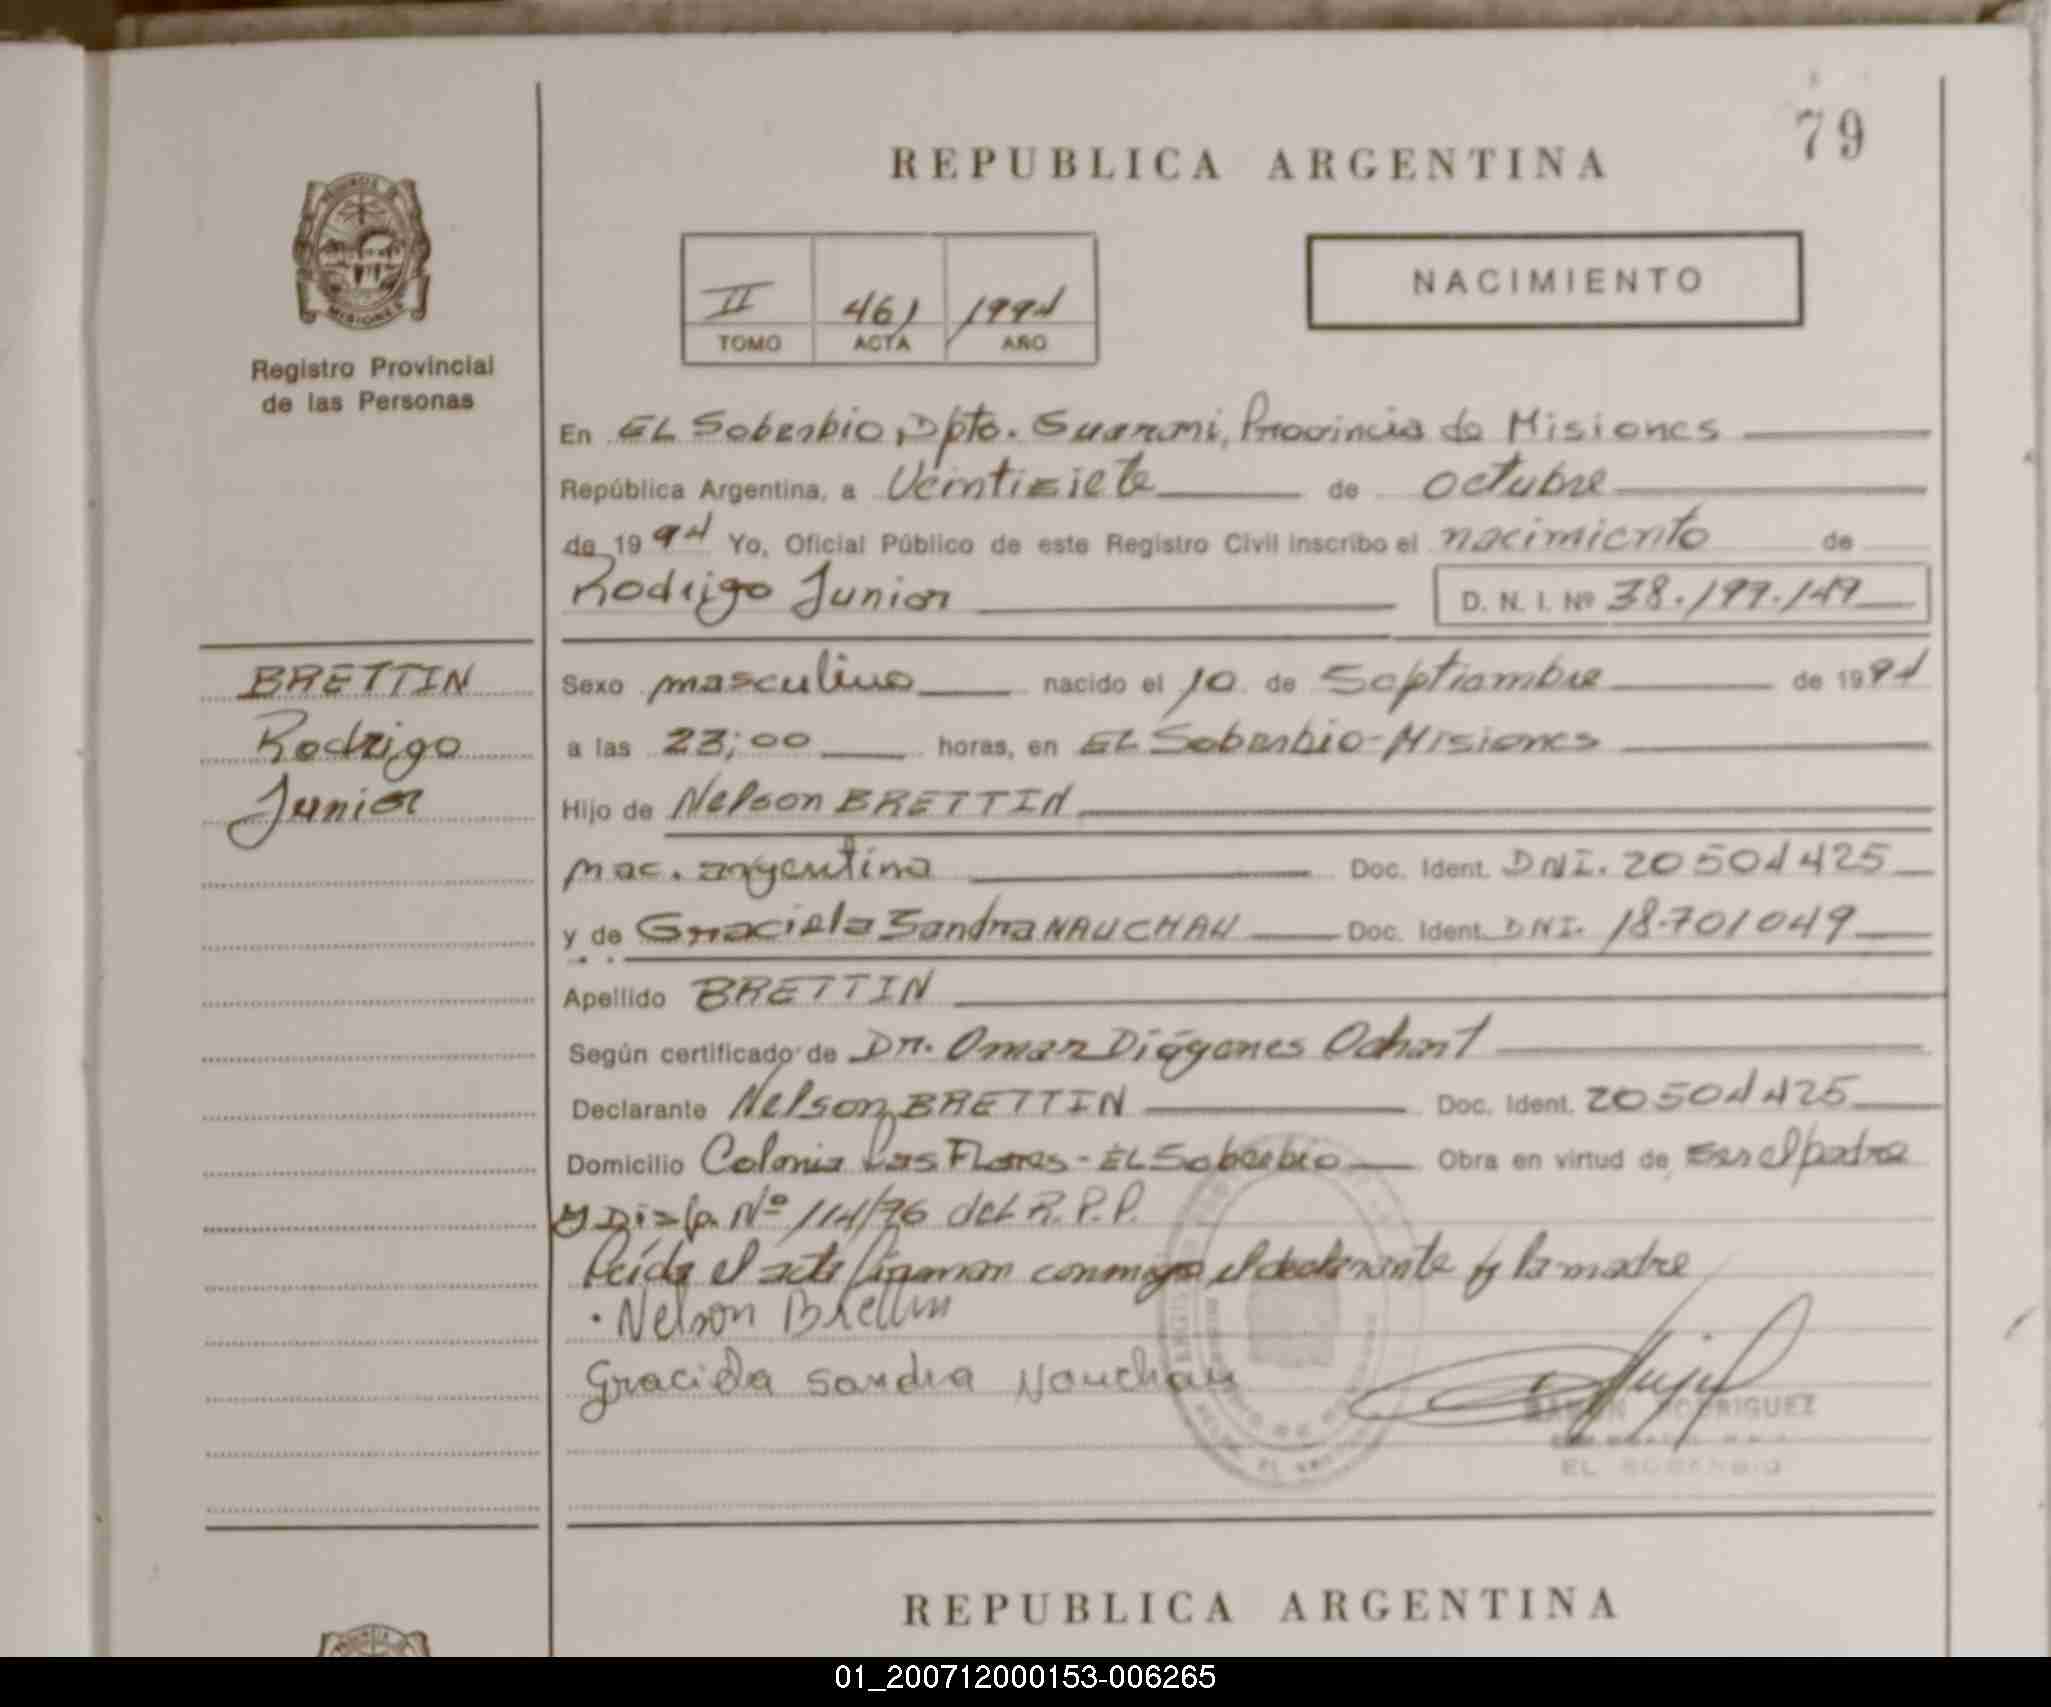 79
REPUBLICA ARGENTINA
NACIMIENTO
II 461 1994
TOMO ACTA AÑO
PROVINCIA DE
MISIONES
Registro Provincial
de las Personas
En EL Soberbio, Dpto. Guarani, Provincia de Misiones
República Argentina, a Veintisiete de octubre
de 1994 Yo, Oficial Público de este Registro Civil inscribo el nacimiento de
Rodrigo Junior D. N. I. Nº 38.197.149
BRETTIN
Rodrigo
Junior
Sexo masculino nacido el 10 de Septiembre de 1994
a las 23;00 horas, en EL Soberbio-Misiones
Hijo de Nelson BRETTIN
nac. argentina Doc. Ident. DNI. 20504425
y de Graciela Sandra NAUCHAU Doc. Ident. DNI. 18.701049
Apellido BRETTIN
Según certificado de Dr. Omar Diógenes
Declarante Nelson BRETTIN Doc. Ident. 20504425
Domicilio Colonia Las Flores - EL Soberbio Obra en virtud de ser el padre
y Disp. Nº 114/76 del R.P.P.
Leída el acta firman conmigo el declarante y la madre
Nelson Brettin
Graciela Sandra Nauchau
RAMON RODRIGUEZ
EL SOBERBIO
REPUBLICA ARGENTINA
01_200712000153-006265